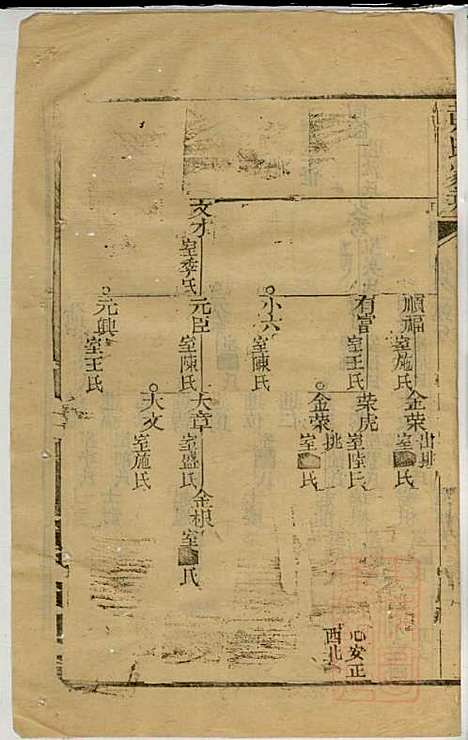 順福
室施氏
金荣
出挑
室
氏
有富
室王氏
荣虎
室陸氏
小六
室陳氏
金荣
挑
室
氏
文才
室季氏
元臣
室陳氏
大章
室盛氏
金根
室
氏
元興
室王氏
大文
室施氏
心安正
西北